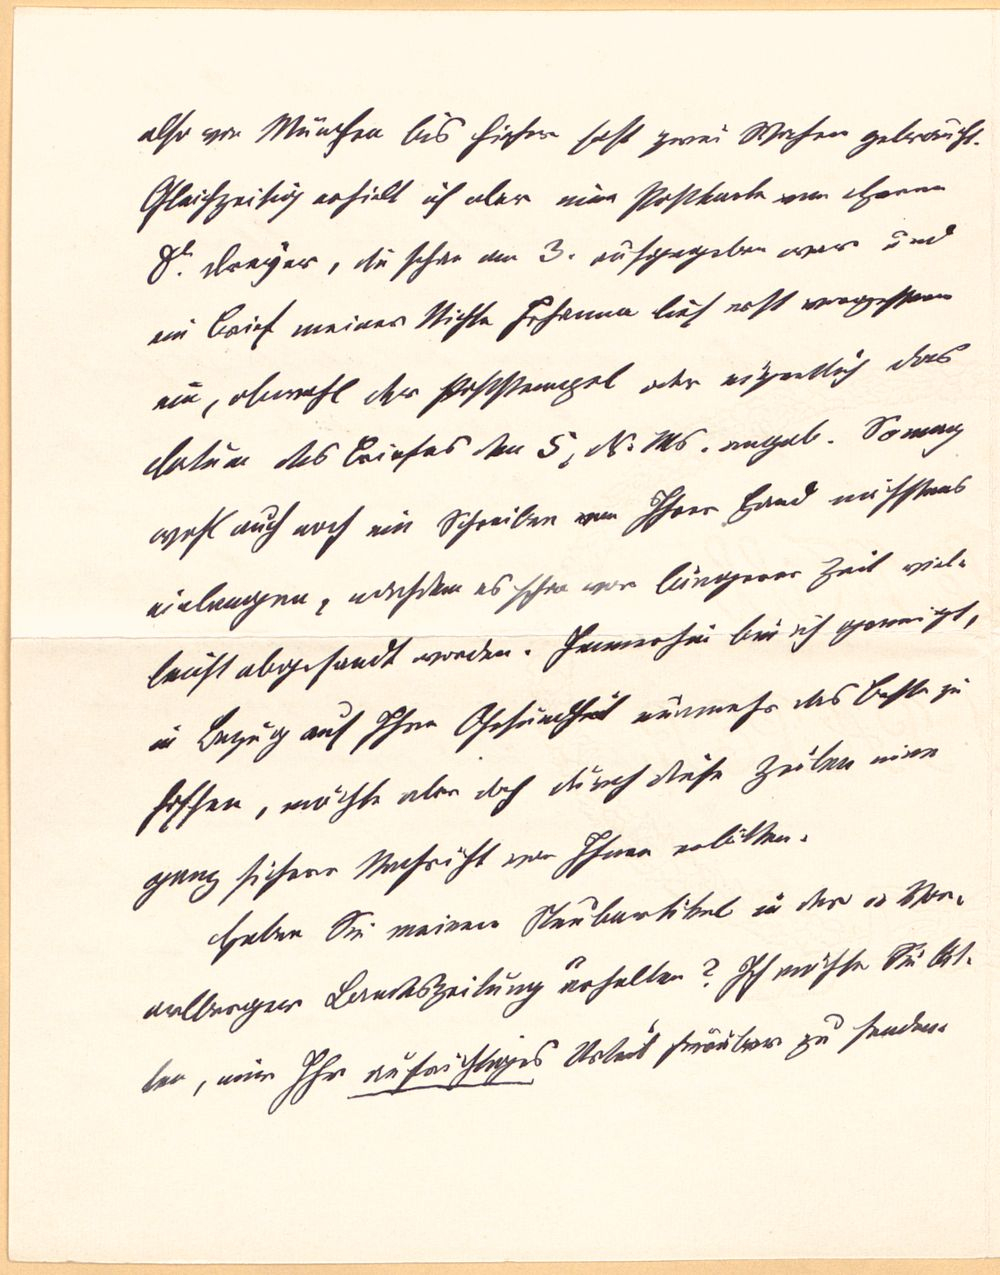 also von München bis hieher fast zwei Wochen gebraucht.
Gleichzeitig erhielt ich aber eine Postkarte von Herrn
Dr. Dreyer, die schon am 3. aufgegeben war und
ein Brief meiner Nichte Johanna lief erst vorgestern
ein, obwohl der Poststempel oder eigentlich das
Datum des Briefes den 5. d. Ms. angab. So mag
wohl auch noch ein Schreiben von Ihrer Hand nächstens
einlangen, nachdem es schon vor längerer Zeit viel-
leicht abgesandt worden. Immerhin bin ich geneigt,
in Bezug auf Ihre Gesundheit nunmehr das Beste zu
hoffen, möchte aber doch durch diese Zeilen eine
ganz sichere Nachricht von Ihnen erbitten.
Haben Sie meinen Steubartikel in der Vor-
arlberger Landeszeitung erhalten? Ich möchte Sie bit-
ten, mir Ihr aufrichtiges Urteil darüber zu senden.